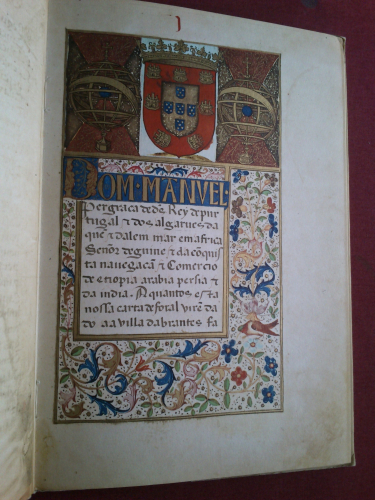 J
DOM·MANVEL·
Per graça de ds̃. Rey de pur
tugal ⁊ dos algarues da
quẽ ⁊ dalem mar em africa
Señor de guine ⁊ da cõquis
ta nauegacã ⁊ Comercio
de etiopia arabia persia ⁊
da india. A quantos esta
nossa carta de foral virẽ da
do aa villa dabrantes fa